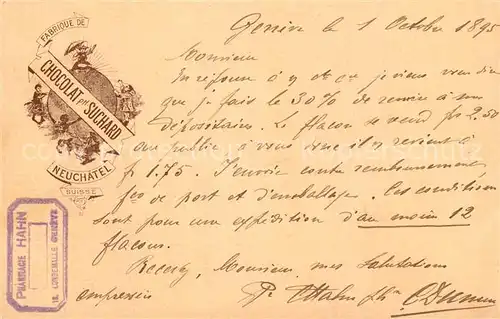 FABRIQUE DE
CHOCOLAT PH. SUCHARD
NEUCHÂTEL
SUISSE
PHARMACIE HAHN
18, LONGEMALLE GENÈVE
Genève le 1 Octobre 1895
Monsieur
En réponse à je viens vous dire
que je fais le 30 % de remise à mes
dépositaires. Le flacon se vend frs 2.50
au public à vous il reviens à
fr 1.75. J'envoie contre remboursement,
fco de port et d'emballage. Ces conditions
sont pour une expédition d'au moins 12
flacons.
Recevez, Monsieur, mes Salutations
empressées
Pr CHahn phn